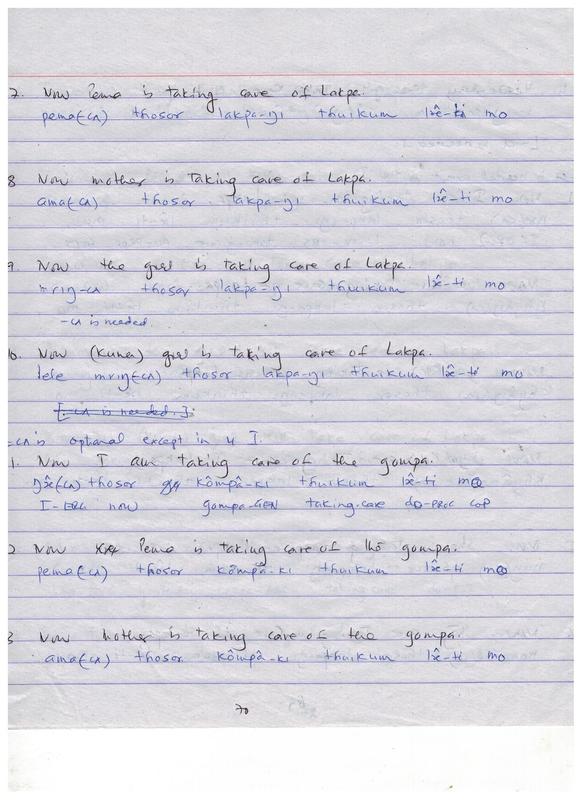 7. Now Pema is taking care of Lakpa.
pema(-cʌ) thosor lakpa-yi thuikum lɔ̂-ti mo
8 Now mother is taking care of Lakpa.
ama(-cʌ) thosor lakpa-yi thuikum lɔ̂-ti mo
9. Now the girl is taking care of Lakpa.
mrıŋ-cʌ thosor lakpa-yi thuikum lɔ̂-ti mo
-cʌ is needed
10. Now (Kunen) girl is taking care of Lakpa.
lele mrıŋ(-cʌ) thosor lakpa-yi thuikum lɔ̂-ti mo
[-cʌ is needed]
-cʌ is optional except in 4 I.
1. Now I am taking care of the gompa.
ŋɔ̂(-cʌ) thosor kômpâ-ki thuikum lɔ̂-ti mo
I-ERG now gompa-GEN taking.care do-PROG COP
2 Now Pema is taking care of the gompa.
pema(-cʌ) thosor kômpâ-ki thuikum lɔ̂-ti mo
3 Now mother is taking care of the gompa.
ama(-cʌ) thosor kômpâ-ki thuikum lɔ̂-ti mo
70